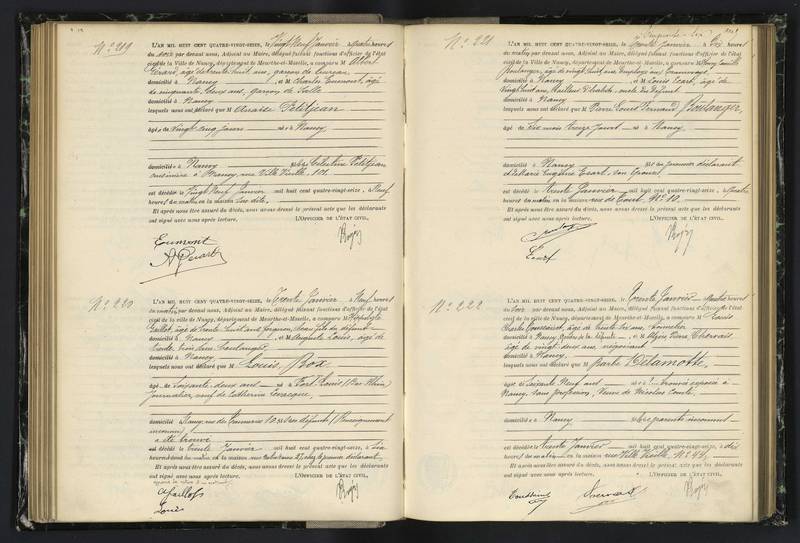 N° 219
L'AN MIL HUIT CENT QUATRE-VINGT-SEIZE, le Vingt Neuf Janvier à Quatre heures
du soir par devant nous, Adjoint au Maire, délégué faisant fonctions d'officier de l'état
civil de la Ville de Nancy, département de Meurthe-et-Moselle, a comparu M Albert
Gérard, âgé de trente huit ans, garçon de bureau
domicilié à Nancy et M Charles Eumont, âgé
de cinquante deux ans, garçon de salle
domicilié à Nancy
lesquels nous ont déclaré que M Anaïse Petitjean
âgé de Vingt cinq jours né à Nancy
domicilié à Nancy fils de Célestine Petitjean
cuisinière à Nancy, rue Ville Vieille, 101.
est décédé le Vingt Neuf Janvier mil huit cent quatre-vingt-seize, à Neuf
heures du matin en la maison sus dite.
Et après nous être assuré du décès, nous avons dressé le présent acte que les déclarants
ont signé avec nous après lecture. L'OFFICIER DE L'ÉTAT CIVIL,
Eumont
A Gérard
N° 220
L'AN MIL HUIT CENT QUATRE-VINGT-SEIZE, le Trente Janvier à Neuf heures
du matin, par devant nous, Adjoint au Maire, délégué faisant fonctions d'officier de l'état
civil de la Ville de Nancy, département de Meurthe-et-Moselle, a comparu M Hippolyte
Gaillot, âgé de trente huit ans, beau fils du défunt
domicilié à Nancy et M Auguste Louis, âgé de
domicilié à Nancy
lesquels nous ont déclaré que M Louis Box
âgé de Soixante deux ans né à Fort Louis (Bas Rhin)
journalier, veuf de Catherine
domicilié à Nancy, rue 10 fils des défunts (Renseignement
inconnu)
a été trouvé
est décédé le trente Janvier mil huit cent quatre-vingt-seize, à Six
heures du matin en la maison 27, chez le premier déclarant
Et après nous être assuré du décès, nous avons dressé le présent acte que les déclarants
ont signé avec nous après lecture. L'OFFICIER DE L'ÉTAT CIVIL,
Gaillot
Louis
N° 221
L'AN MIL HUIT CENT QUATRE-VINGT-SEIZE, le Trente Janvier à Dix heures
du matin par devant nous, Adjoint au Maire, délégué faisant fonctions d'officier de l'état
civil de la Ville de Nancy, département de Meurthe-et-Moselle, a comparu M Henry Camille
Boulanger, âgé de vingt huit ans, employé aux Tramways
domicilié à Nancy et M Louis Ecart, âgé de
vingt huit ans, oncle du défunt
domicilié à Nancy
lesquels nous ont déclaré que M Pierre Louis Fernand Boulanger,
âgé de Six mois treize jours né à Nancy
domicilié à Nancy fils du premier déclarant
et de Marie Eugénie Ecart, son épouse
est décédé le trente Janvier mil huit cent quatre-vingt-seize, à Quatre
heures du matin en la maison rue de N° 10.
Et après nous être assuré du décès, nous avons dressé le présent acte que les déclarants
ont signé avec nous après lecture. L'OFFICIER DE L'ÉTAT CIVIL,
Ecart
N° 222
L'AN MIL HUIT CENT QUATRE-VINGT-SEIZE, le Trente Janvier à Quatre heures
du soir par devant nous, Adjoint au Maire, délégué faisant fonctions d'officier de l'état
civil de la Ville de Nancy, département de Meurthe-et-Moselle, a comparu M Louis
Charles Toussaint, âgé de trente six ans,
domicilié à Nancy de la défunte et M Pierre Thervais,
âgé de vingt deux ans, négociant
domicilié à Nancy.
lesquels nous ont déclaré que M Barbe Delamotte,
âgé de Soixante Neuf ans né à
Nancy, sans profession, Veuve de Nicolas Comté.
domicilié à Nancy fille de parents inconnus
est décédé le trente Janvier mil huit cent quatre-vingt-seize, à dix
heures du matin en la maison rue Ville Vieille, N° 44.
Et après nous être assuré du décès, nous avons dressé le présent acte que les déclarants
ont signé avec nous après lecture. L'OFFICIER DE L'ÉTAT CIVIL,
Toussaint